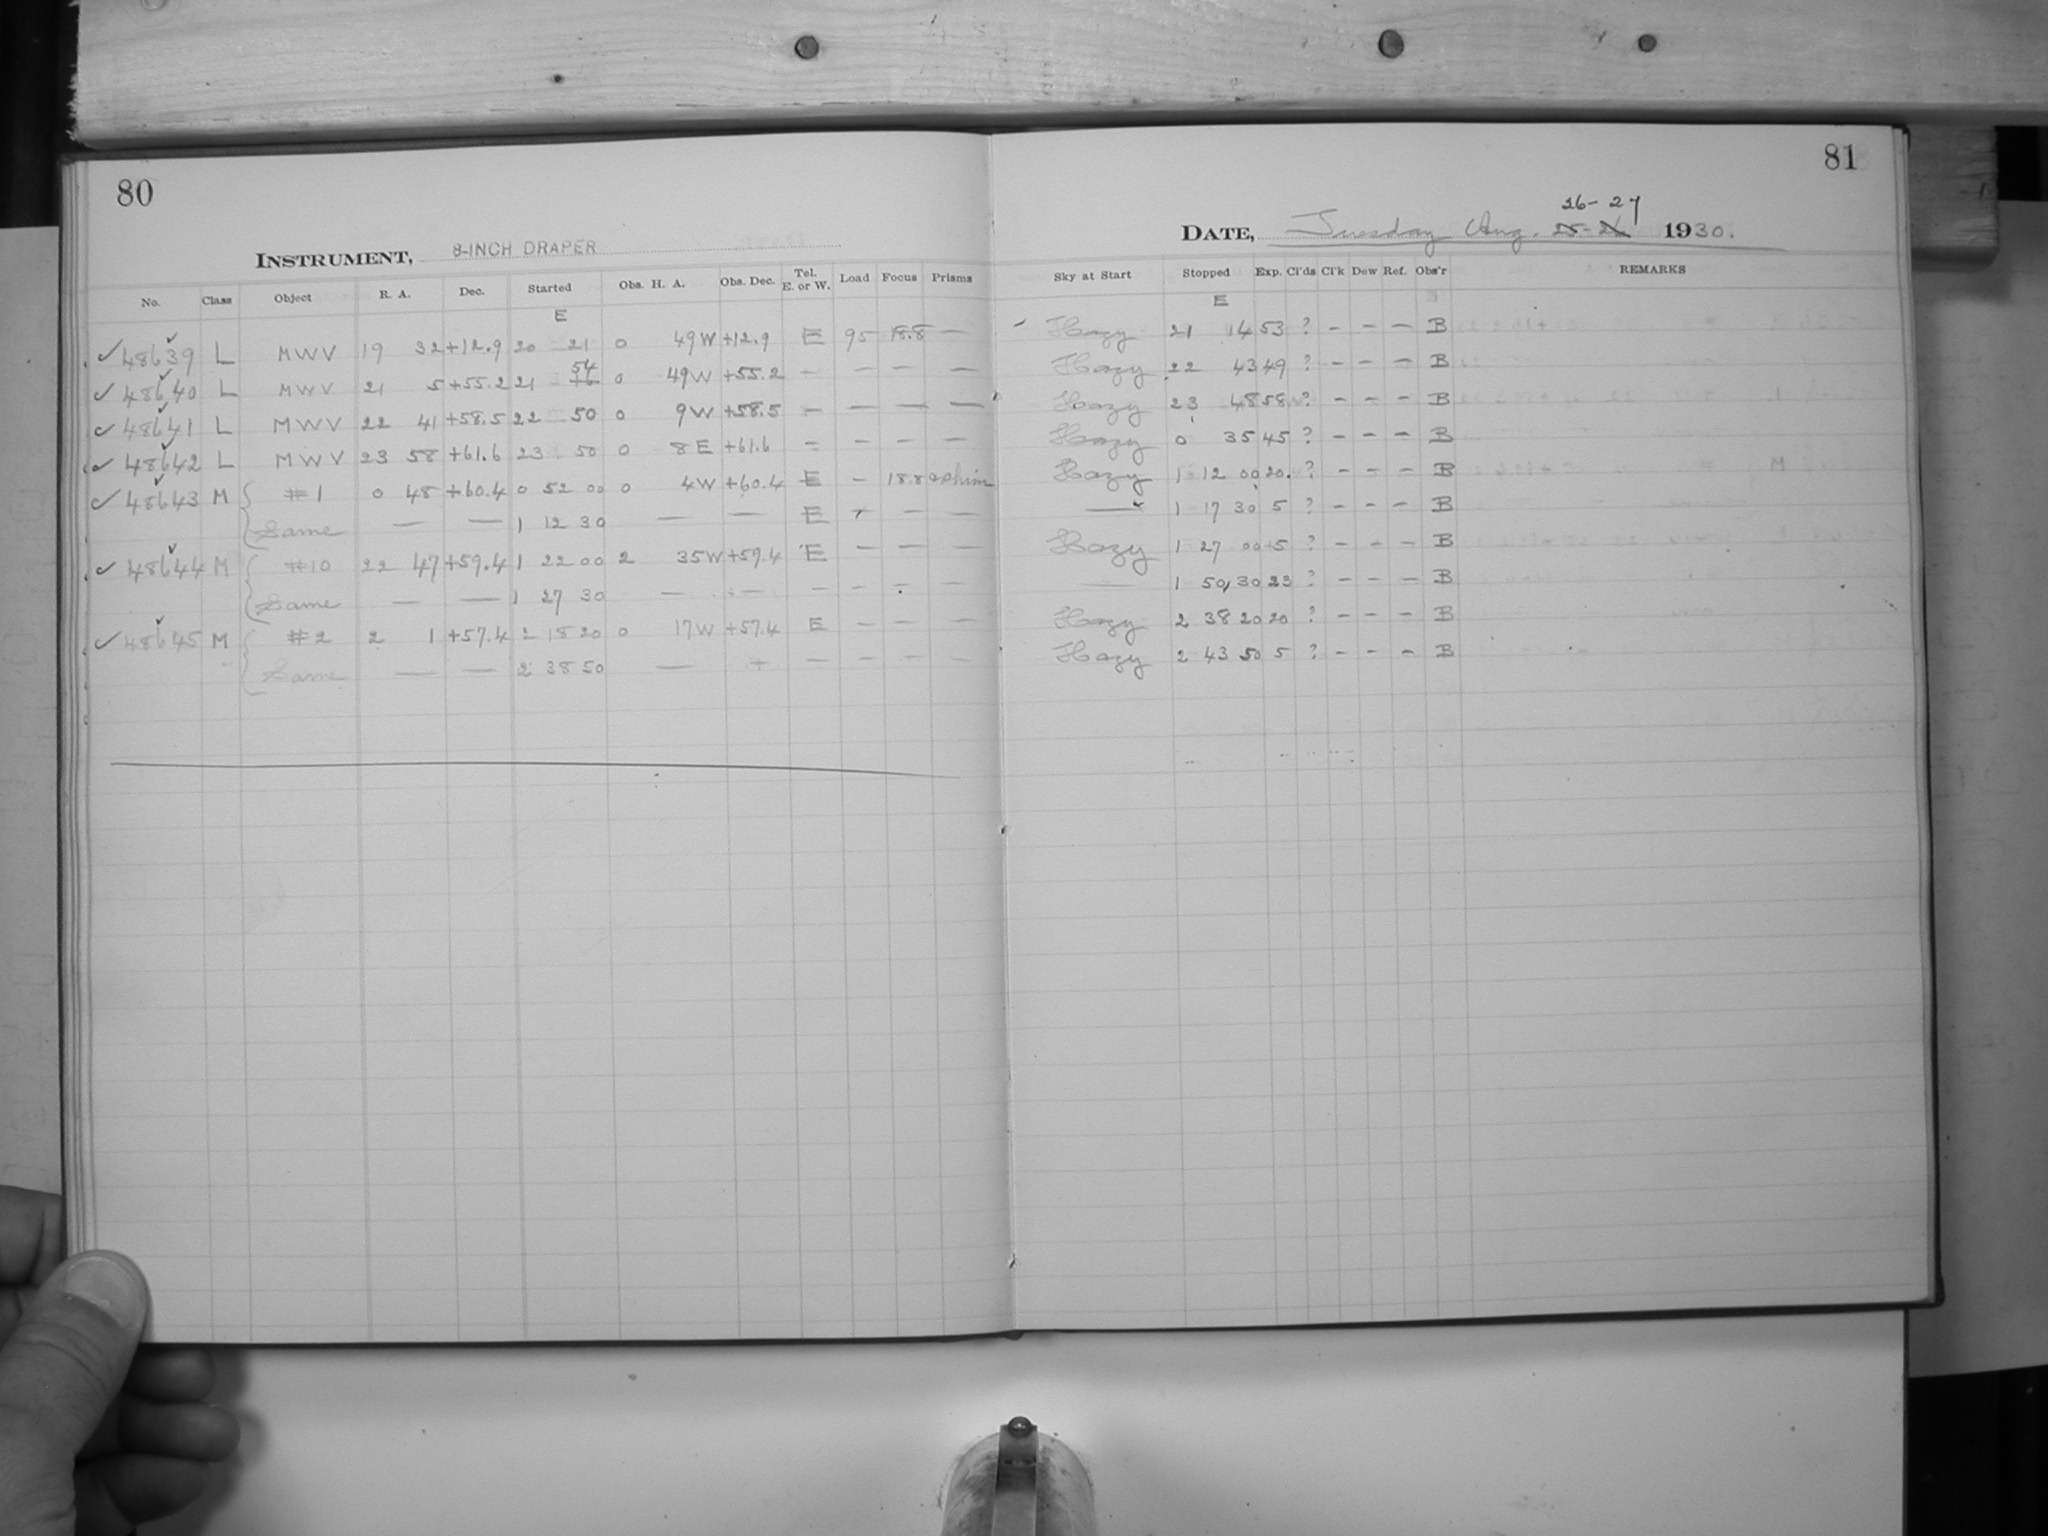 80
INSTRUMENT, 8-INCH DRAPER
No. Class Object R. A. Dec. Started Obs. H. A. Obs. Dec. Tel. E. or W. Load Focus Prisms
E
✓ 48639 L MWV 19 32 +12.9 20 21 0 49W +12.9 E 95 18.8 —
54
✓ 48640 L MWV 21 5 +55.2 21 0 49W +55.2 — — — —
✓ 48641 L MWV 22 41 +58.5 22 50 0 9W +58.5 — — — —
✓ 48642 L MWV 23 58 +61.6 23 50 0 8E +61.6 — — — —
✓ 48643 M #1 0 48 +60.4 0 52 00 0 4W +60.4 E — 18.8
Same — — 1 12 30 — — E — — —
✓ 48644 M #10 22 47 +59.4 1 22 00 2 35W +59.4 E — — —
Same — — 1 27 30 — — — — — —
✓ 48645 M #2 2 1 +57.4 2 18 20 0 17W +57.4 E — — —
Same — — 2 38 50 — — — — — —
81
26-27
DATE, Tuesday Aug. 1930.
Sky at Start Stopped Exp. Cl'ds Cl'k Dew Ref. Obs'r REMARKS
E
Hazy 21 14 53 ? — — — B
Hazy 22 43 49 ? — — — B
Hazy 23 48 58 ? — — — B
Hazy 0 35 45 ? — — — B
Hazy 1 12 00 20 ? — — — B
— 1 17 30 5 ? — — — B
Hazy 1 27 00 5 ? — — — B
— 1 50 30 23 ? — — — B
Hazy 2 38 20 20 ? — — — B
Hazy 2 43 50 5 ? — — — B